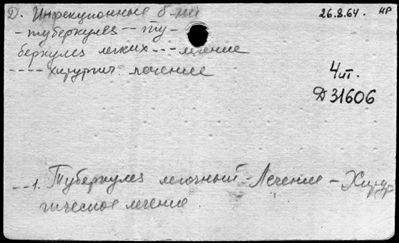 Д. Инфекционные б-ни 26.8.64. НР
- туберкулез - ту-
беркулез легких --- лечение
---- хирургич. лечение
4 ит.
Д31606
--1. Туберкулез легочный - Лечение - Хирур
гическое лечение